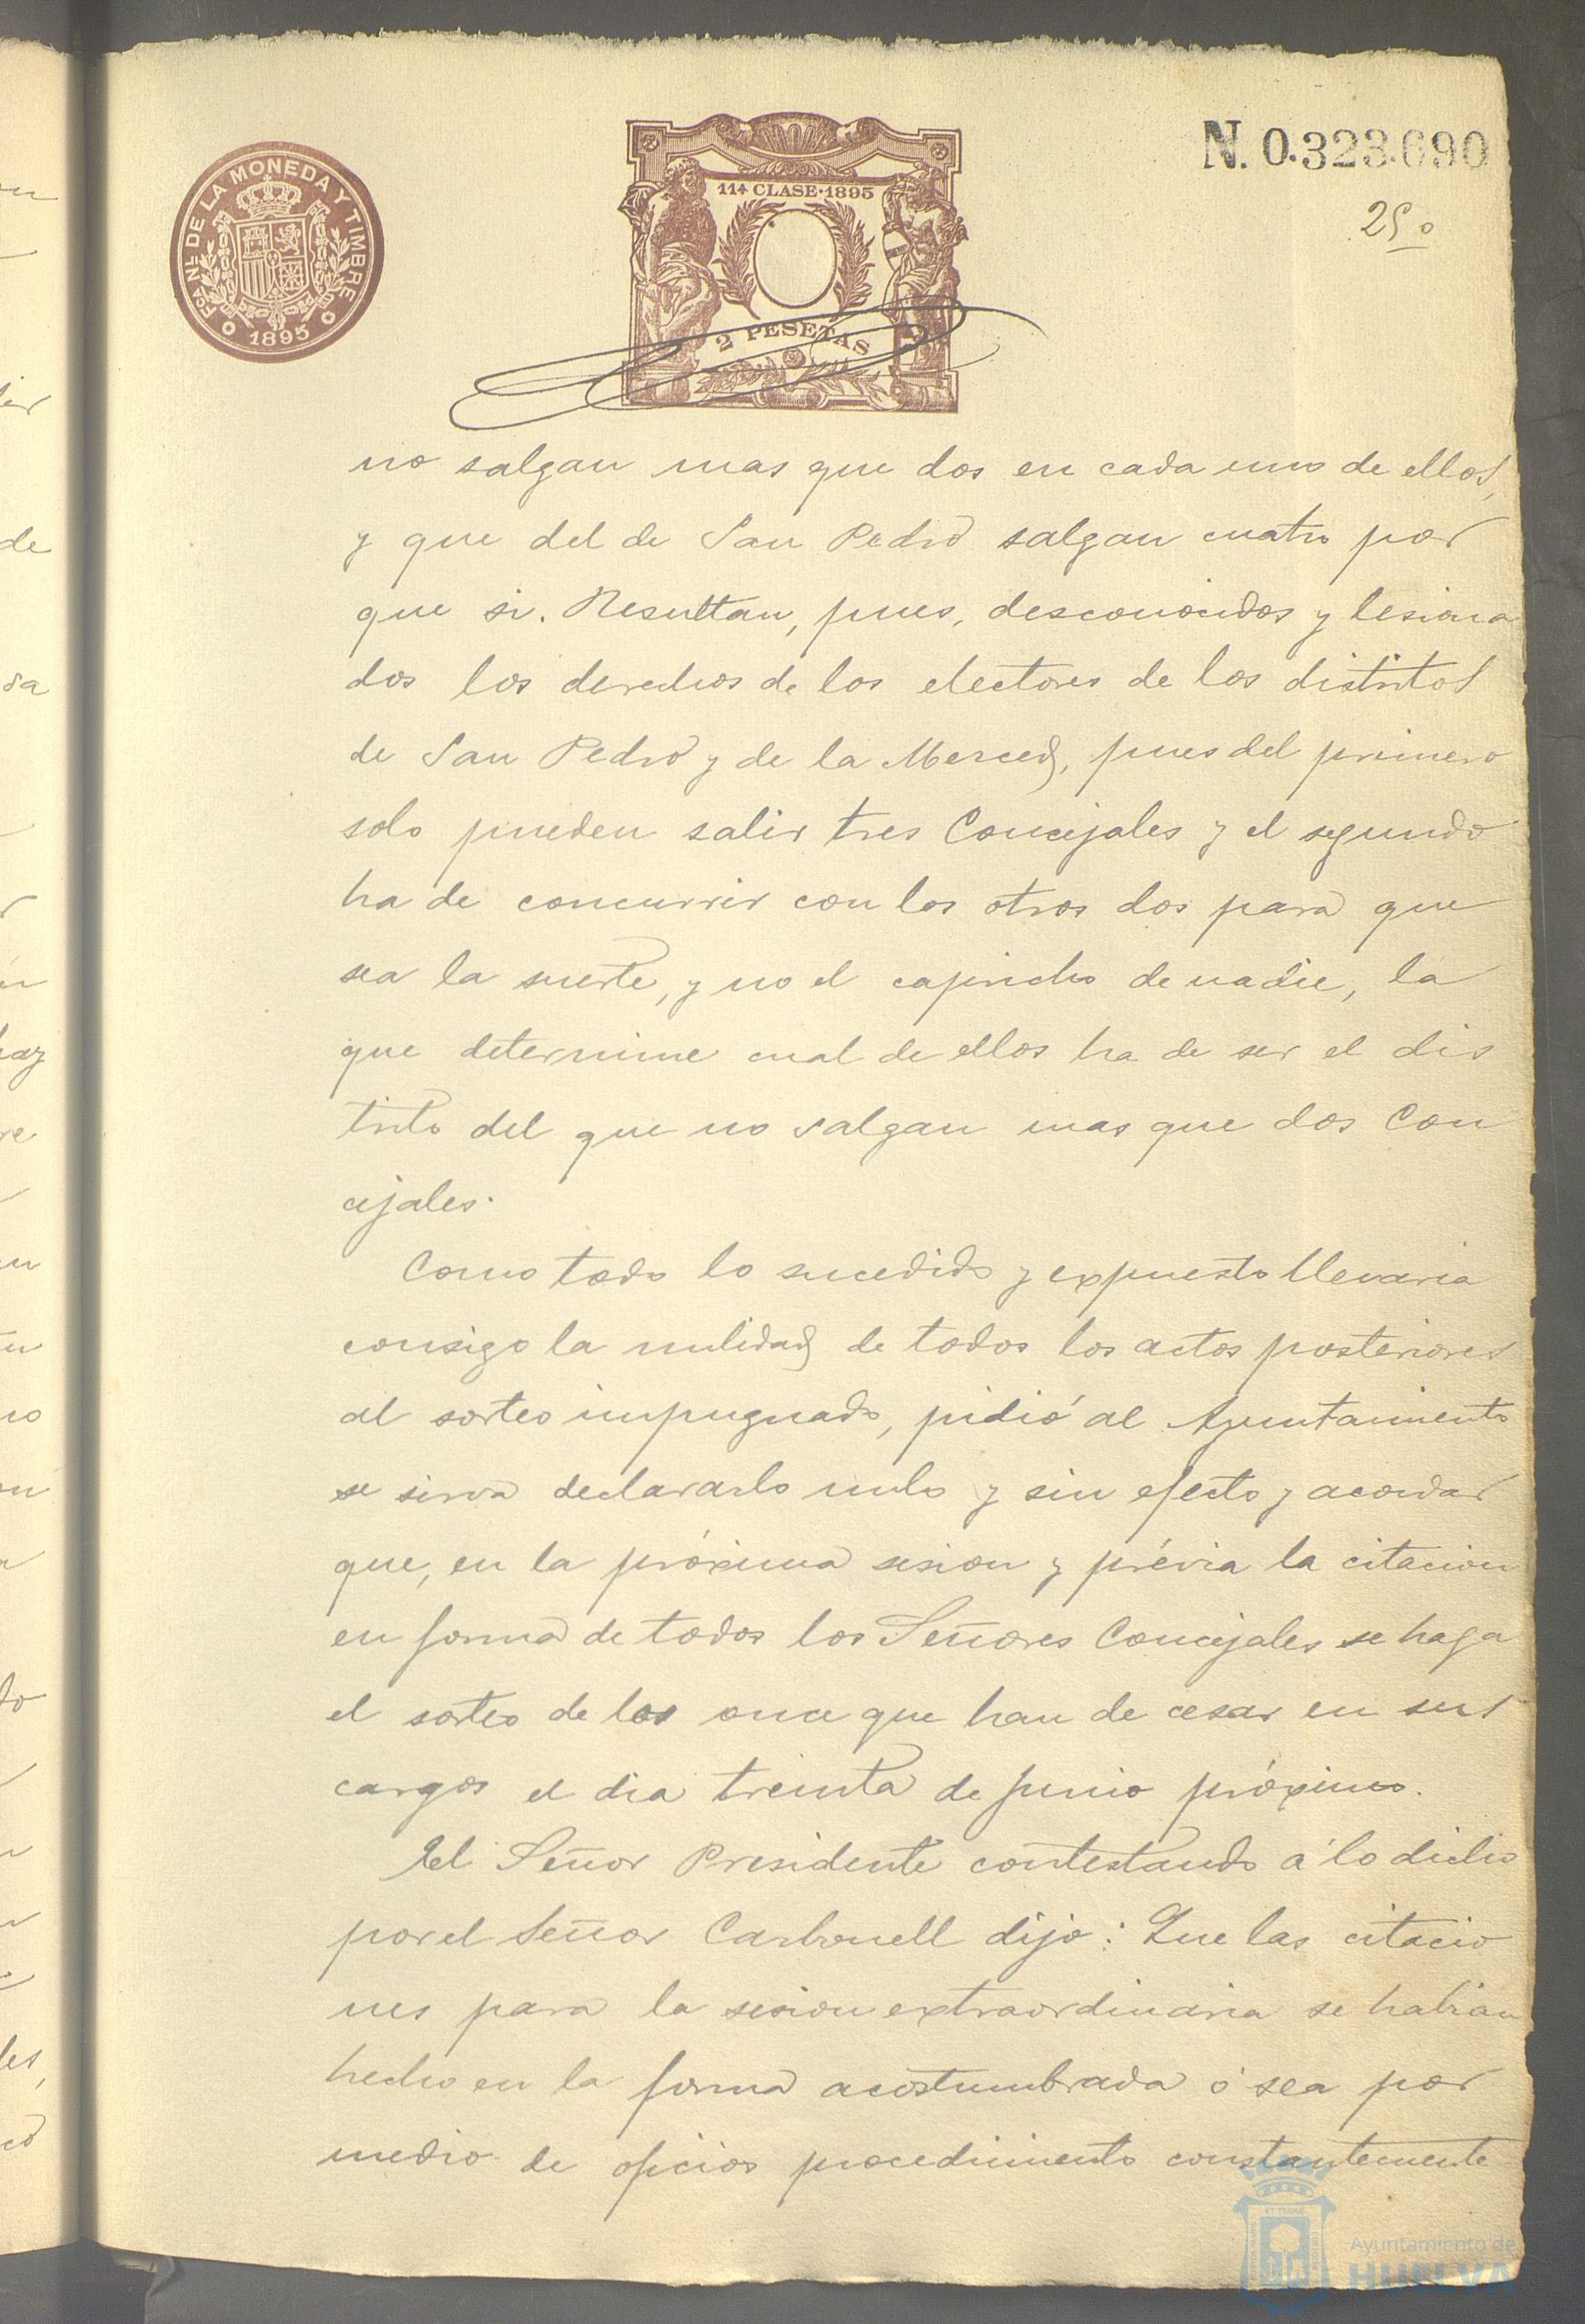 N. 0.323.690
25o
FCA NL DE LA MONEDA Y TIMBRE
1895
11ª CLASE·1895
2 PESETAS
no salgan mas que dos en cada uno de ellos,
y que del de San Pedro salgan cuatro por
que si. Resultan, pues, desconocidos y lesiona
dos los derechos de los electores de los distritos
de San Pedro y de la Merced, pues del primero
solo pueden salir tres Concejales y el segundo
ha de concurrir con los otros dos para que
sea la suerte, y no el capricho de nadie, la
que determine cual de ellos ha de ser el dis
trito del que no salgan mas que dos Con
cejales.
Como todo lo sucedido y expuesto llevaria
consigo la nulidad de todos los actos posteriores
al sorteo impugnado, pidió al Ayuntamiento
se sirva declararlo nulo y sin efecto y acordar
que, en la próxima sesion y prévia la citacion
en forma de todos los Señores Concejales se haga
el sorteo de los once que han de cesar en sus
cargos el dia treinta de Junio próximo.
El Señor Presidente contestando á lo dicho
por el Señor Carbonell dijo: Que las citacio
nes para la sesion extraordinaria se habian
hecho en la forma acostumbrada ó sea por
medio de oficios procedimiento constantemente
Ayuntamiento de
HUELVA